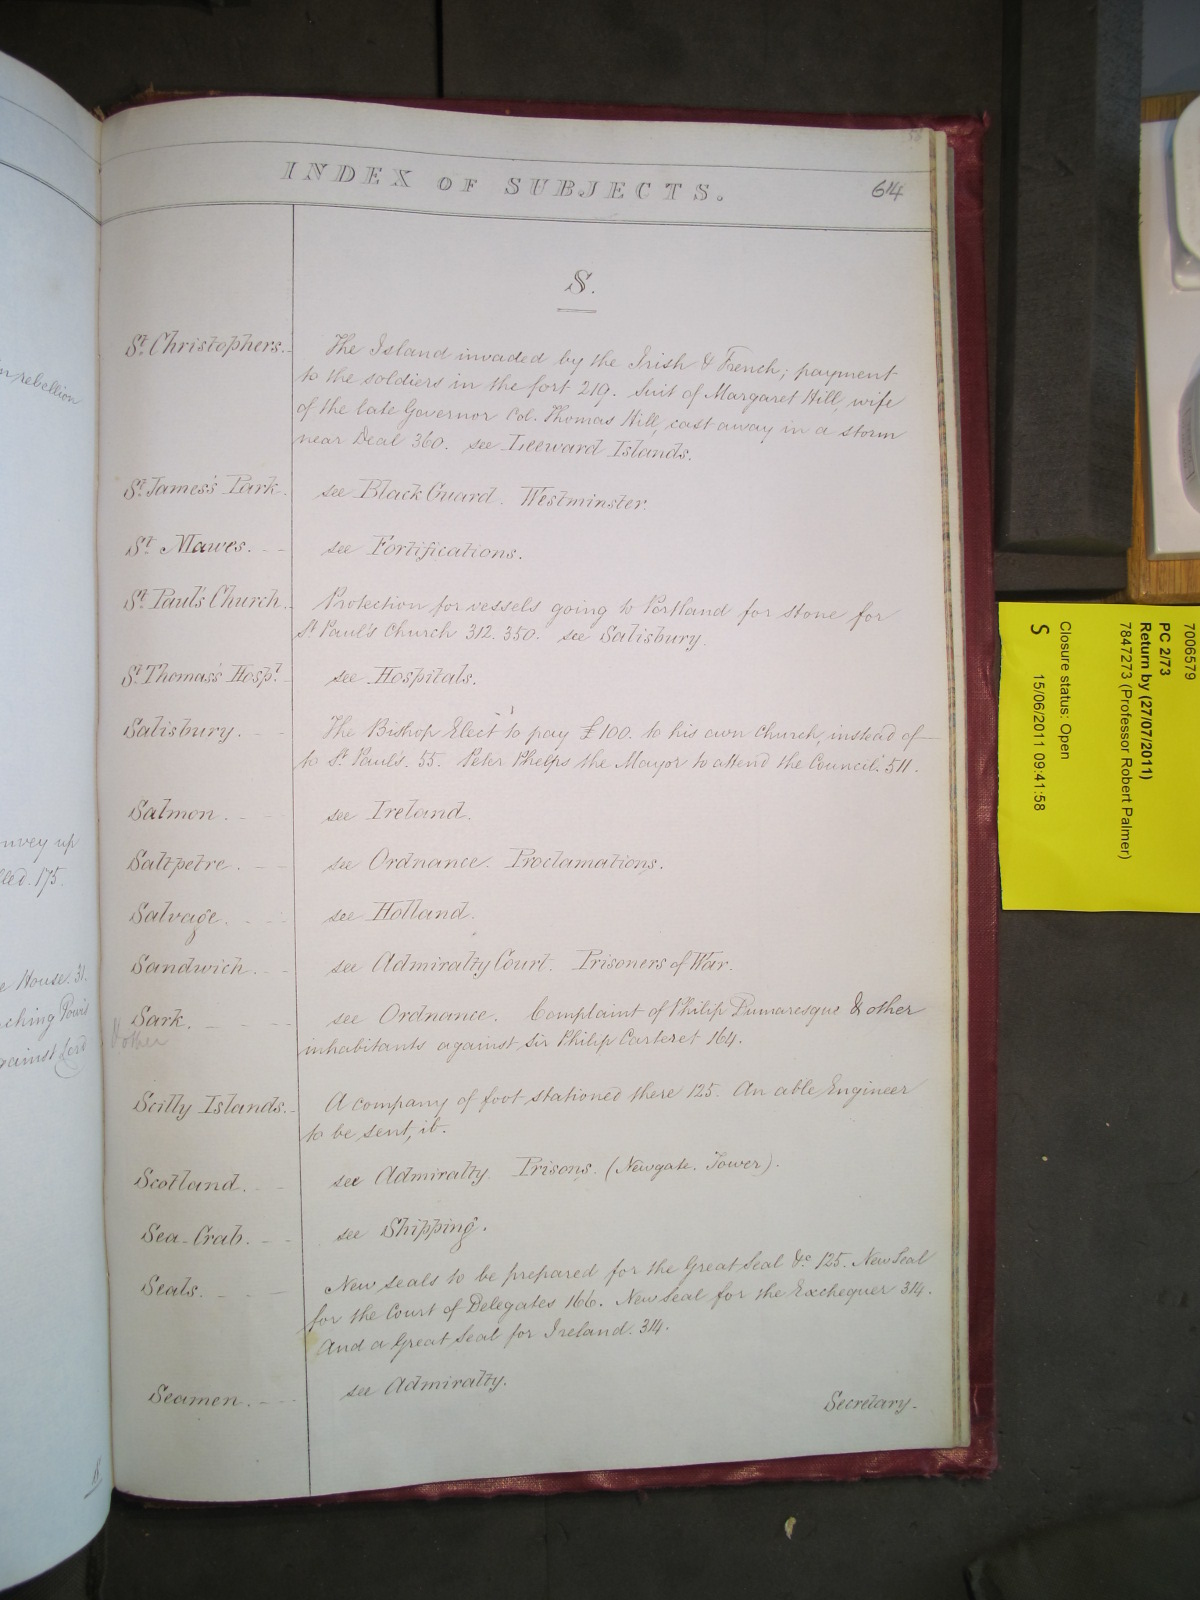 INDEX OF SUBJECTS.
614
S.
St. Christophers.
The Island invaded by the Irish & French; payment
to the soldiers in the fort 219. Suit of Margaret Hill, wife
of the late Governor Col. Thomas Hill, cast away in a storm
near Deal 360. see Leeward Islands.
St. James's Park.
see Black Guard. Westminster.
St. Mawes.
see Fortifications.
St. Paul's Church.
Protection for vessels going to Portland for stone for
St. Paul's Church 312. 350. see Salisbury.
St. Thomas's Hospl.
see Hospitals.
Salisbury.
The Bishop Elect to pay £100. to his own Church, instead of
to St. Paul's. 55. Peter Phelps the Mayor to attend the Council. 511.
Salmon.
see Ireland.
Saltpetre.
see Ordnance. Proclamations.
Salvage.
see Holland.
Sandwich.
see Admiralty Court. Prisoners of War.
Sark.
see Ordnance. Complaint of Philip Dumaresque & other
inhabitants against Sir Philip Carteret 164.
Scilly Islands.
A company of foot stationed there 125. An able Engineer
to be sent, ib.
Scotland.
see Admiralty. Prisons. (Newgate. Tower).
Sea-Crab.
see Shipping.
Seals.
New seals to be prepared for the Great Seal &c. 125. New Seal
for the Court of Delegates 166. New Seal for the Exchequer 314.
And a Great Seal for Ireland. 314.
Seamen.
see Admiralty.
Secretary.
n rebellion
nvey up
lled. 175.
e House. 31.
ching Powis
gainst Lord
7006579
PC 2/73
Return by (27/07/2011)
7847273 (Professor Robert Palmer)
Closure status: Open
S 15/06/2011 09:41:58